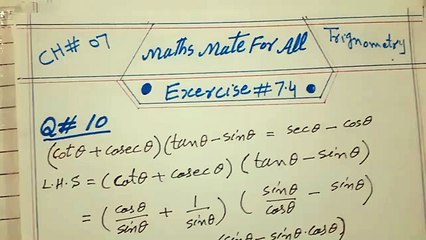 CH# 07
Maths Mate For All
Trignometry
Exercise #7.4
Q# 10
(cotθ + cosecθ)(tanθ - sinθ = secθ - cosθ
L.H.S = (cotθ + cosecθ) (tanθ - sinθ)
= (cosθ/sinθ + 1/sinθ) (sinθ/cosθ - sinθ)
(sinθ - sinθ·cosθ)